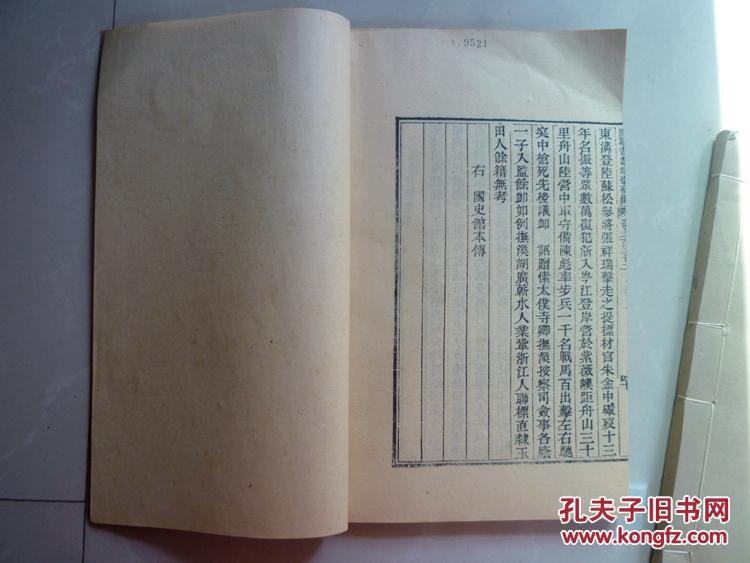 9521
東溝登陸蘇松參將張祥瑞擊走之提標材官朱金中礮歿十三
年名振等眾數萬復犯浙入岑江登岸營於紫薇嶴距舟山三十
里舟山陸營中軍守備陳彪率步兵一千名戰馬百出擊左右馳
突中槍死先後議卹　詔贈愫太僕寺卿撫溪按察司僉事各廕
一子入監餘卹如例撫溪湖廣蘄水人業鞏浙江人聯標直隸玉
田人餘籍無考
右　國史館本傳
孔夫子旧书网
www.kongfz.com